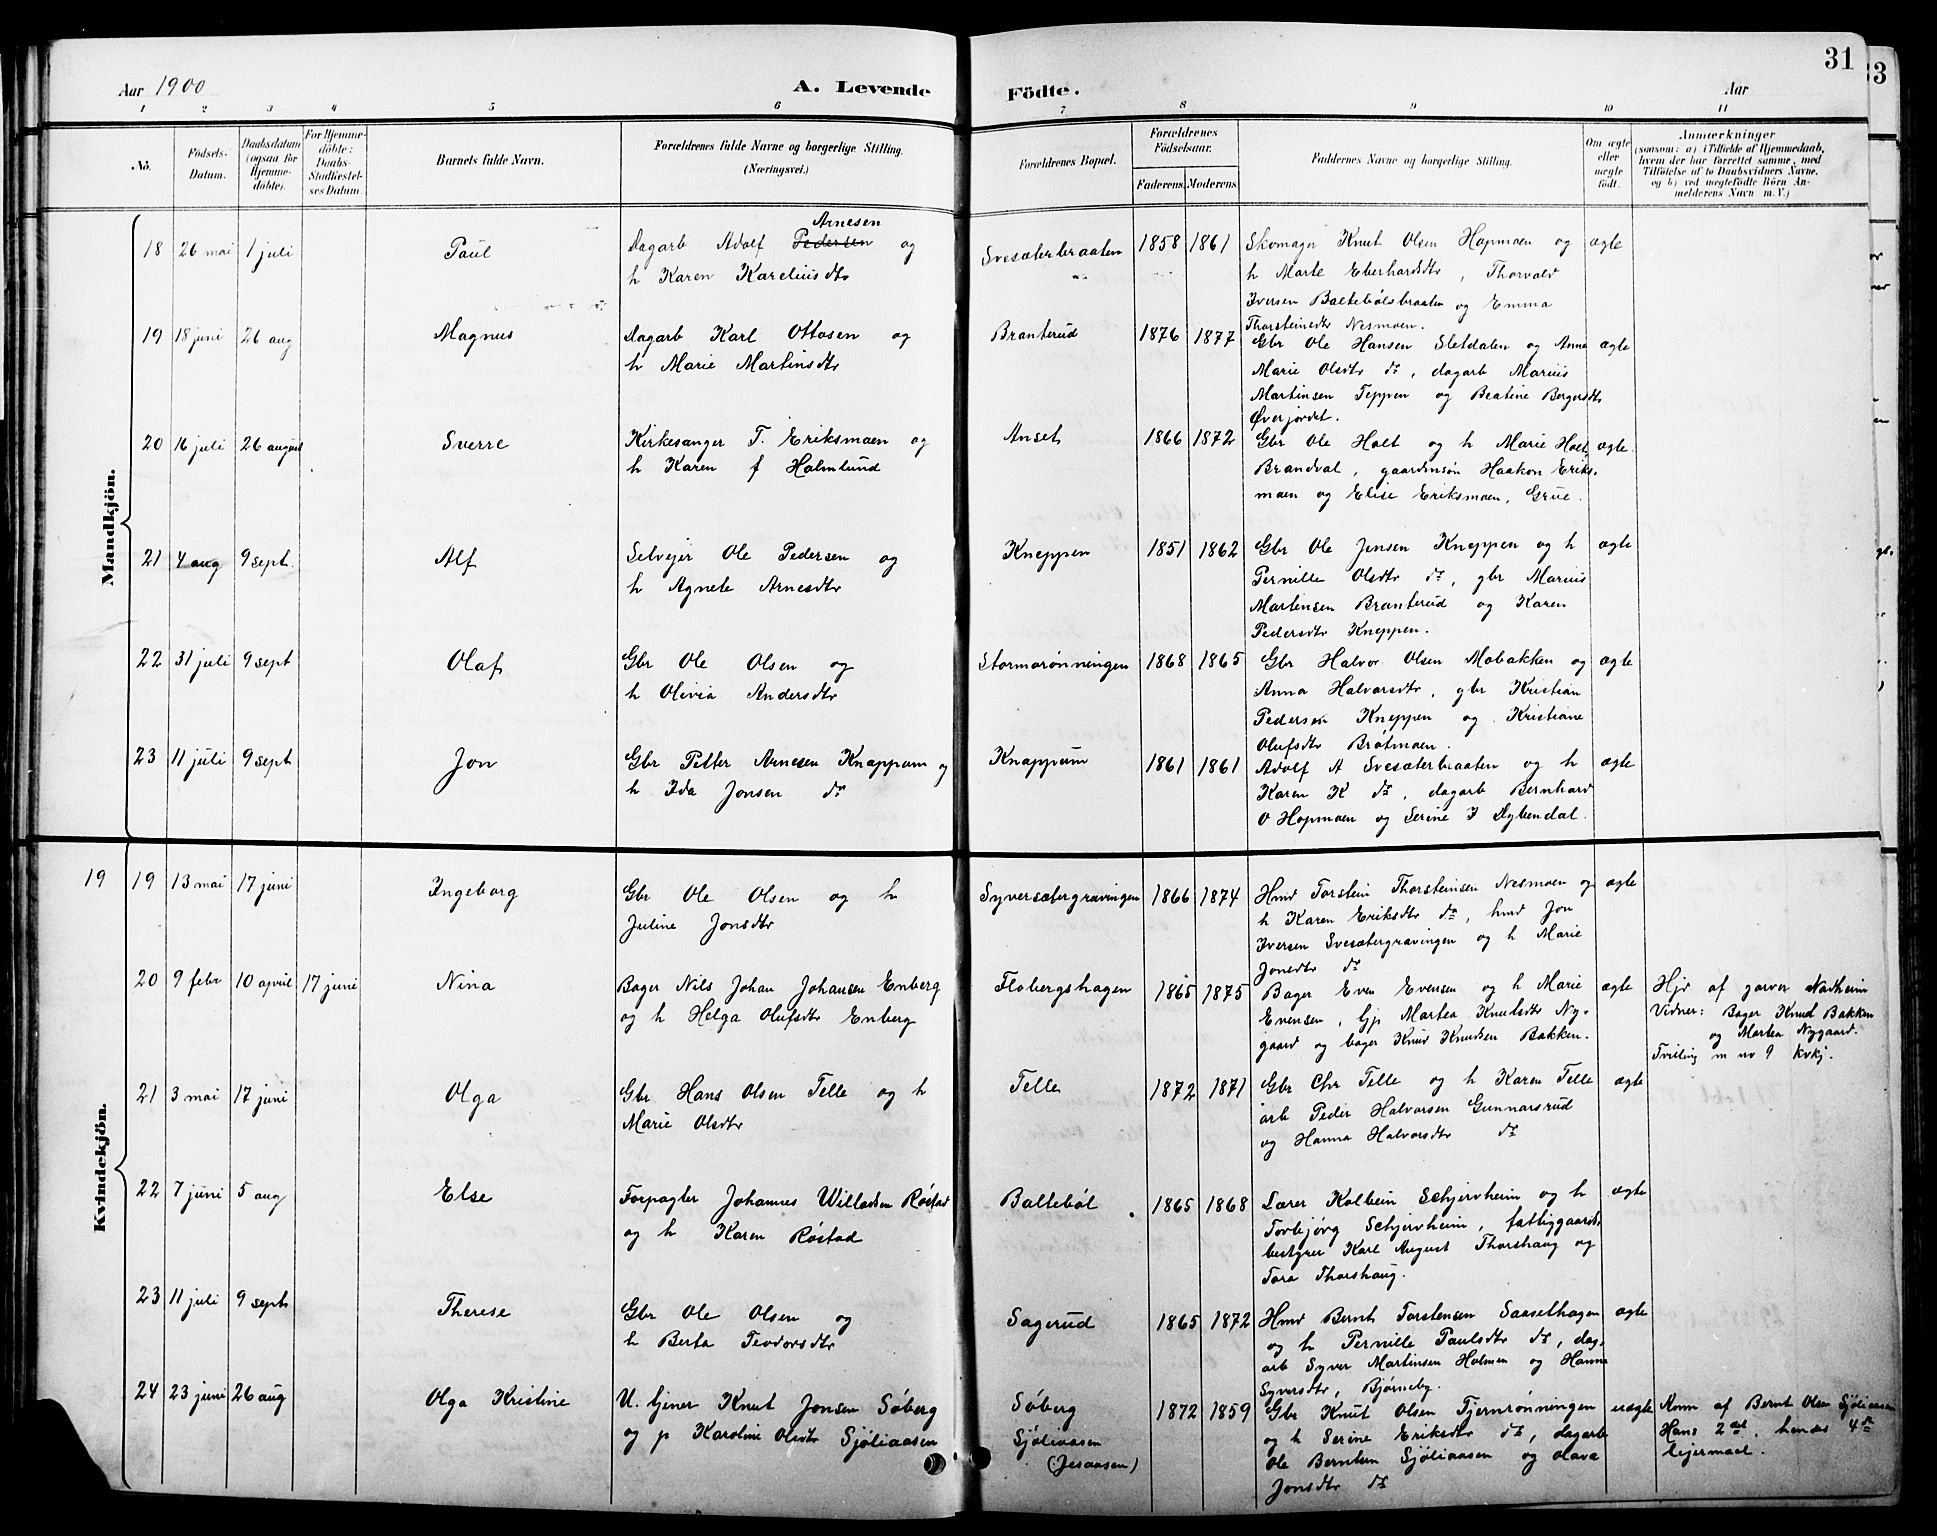 Aar 1900
A. Levende
Födte.
Aar
31
33
1 2 3 4 5 6 7 8 9 10 11
No.
Födsels-
Datum.
Daabsdatum
(ogsaa for
Hjemme-
döbte).
For Hjemme-
döbte:
Daabs-
Stadfæstel-
ses Datum.
Barnets fulde Navn.
Forældrenes fulde Navne og borgerlige Stilling.
(Næringsvei.)
Forældrenes Bopæl.
Forældrenes
Födselsaar.
Faderens. Moderens.
Faddernes Navne og borgerlige Stilling.
Om ægte
eller
uægte
födt.
Anmærkninger
(saasom: a) i Tilfælde af Hjemmedaab,
hvem der har forrettet samme, med
Tilföielse af to Daabsvidners Navne,
og b) ved uægtefödte Börn An-
melderens Navn m. V.)
Mandkjön.
18 26 mai 1 juli Paul
Arnesen
Dagarb Adolf Pedersen og
h Karen Kareliusdtr
Svesæterbraaten 1858 1861
Skomager Knut Olsen Hopmoen og
h Marte Eberhardsdtr, Thorvald
Iversen Baltebölsbraaten og Emma
Thorsteinsdtr Nesmoen.
ægte
19 18 juni 26 aug Magnus
Dagarb Karl Ottosen og
h Marie Martinsdtr
Branterud 1876 1877
Gbr Ole Hansen Sletdalen og Anna
Marie Olsdtr ds, dagarb Marius
Martinsen Teppen og Beatine Bergersdtr
Øverjordet.
ægte
20 16 juli 26 august Sverre
Kirkesanger T. Eriksmoen og
h Karen f Holmlund
Anset 1866 1872
Gbr Ole Holt og h Marie Holt,
Brandval, gaardmsön Haakon Eriks-
moen og Elise Eriksmoen, Grue.
ægte
21 4 aug 9 sept. Alf
Selvejer Ole Pedersen og
h Agnete Arnesdtr
Kneppen 1851 1862
Gbr Ole Jensen Kneppen og h
Pernille Olsdtr ds, gbr Marius
Martinsen Branterud og Karen
Pedersdtr Kneppen.
ægte
22 31 juli 9 sept Olaf
Gbr Ole Olsen og
h Olivia Andersdtr
Stormorønningen 1868 1865
Gbr Halvor Olsen Mobakken og
Anna Halvorsdtr, gbr Kristian
Pedersen Kneppen og Kristiane
Olufsdtr Brøtmoen.
ægte
23 11 juli 9 sept Jon
Gbr Petter Arnesen Knappum og
h Ida Jonsen ds
Knappum 1861 1861
Adolf A Svesæterbraaten og h
Karen K ds, dagarb Bernhard
O Hopmoen og Serine I Dybendal.
ægte
Kvindekjön.
19 19 13 mai 17 juni Ingeborg
Gbr Ole Olsen og h
Juline Jonsdtr
Syversætergravingen 1866 1874
Hmd Torstein Thorsteinsen Nesmoen og
h Karen Eriksdtr ds, hmd Jon
Iversen Svesætergravingen og h Marie
Jonsdtr ds
ægte
20 9 febr 10 april 17 juni Nina
Bager Nils Johan Johansen Enberg
og h Helga Olufsdtr Enberg
Flobergshagen 1865 1875
Bager Even Evensen og h Marie
Evensen, Gjp Martea Knutsdtr Ny-
gaard og bager Knud Knudsen Bakken.
ægte
Hjd af garver Nordheim
Vidner: Bager Knud Bakken
og Martea Nygaard.
Tvilling m no 9 kvkj.
21 3 mai 17 juni Olga
Gbr Hans Olsen Telle og h
Marie Olsdtr
Telle 1872 1871
Gbr Chr Telle og h Karen Telle
arb Peder Halvorsen Gunnarsrud
og Hanna Halvorsdtr ds
ægte
22 7 juni 5 aug Else
Forpagter Johannes Willadsen Røstad
og h Karen Røstad
Baltebøl 1865 1868
Lærer Kolbein Schjervheim og h
Torbjørg Schjervheim, fattiggaards-
bestyrer Karl August Thorshaug og
Tora Thorshaug.
ægte
23 11 juli 9 sept Therese
Gbr Ole Olsen og
h Berta Teodorsdtr
Sagerud 1865 1872
Hmd Bernt Torstensen Saaselhagen
og h Pernille Paulsdtr ds, dag-
arb Syver Martinsen Holmen og Hanna
Syversdtr, Bjørneby.
ægte
24 23 juni 26 aug Olga Kristine
U. tjener Knut Jonsen Søberg
og p Karoline Olsdtr Sjøliaasen
Søberg
Sjöliaasen
(Jesaasen)
1872 1859
Gbr Knut Olsen Tjernrønningen
og h Serine Eriksdtr ds, dagarb
Ole Berntsen Sjøliaasen og Olava
Jonsdtr ds
uægte
Anm af Bernt Olsen Sjöliaasen
Hans 2det, hendes 4de
lejermaal.